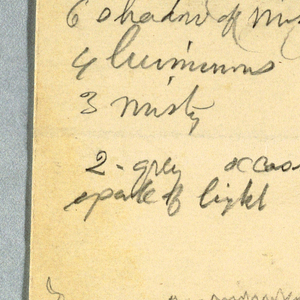 6 shadow of
4 luminous
3 misty
2 - grey
spark of light